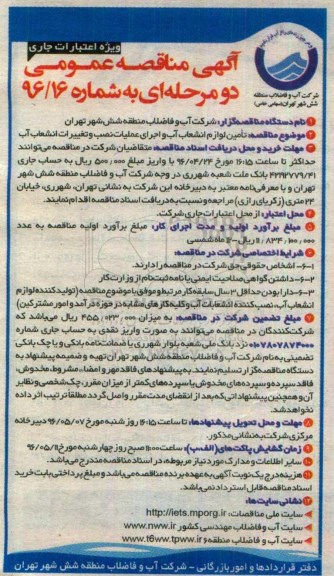 ویژه اعتبارات جاری
آگهی مناقصه عمومی
دو مرحله‌ای به شماره ۹۶/۱۶
شرکت آب و فاضلاب منطقه
شش شهر تهران (سهامی خاص)
۱ نام دستگاه مناقصه‌گزار: شرکت آب و فاضلاب منطقه شش شهر تهران
۲ موضوع مناقصه: تأمین لوازم انشعاب آب و اجرای عملیات نصب و تغییرات انشعاب آب
۳ مهلت خرید و محل دریافت اسناد مناقصه: متقاضیان شرکت در مناقصه می‌توانند
حداکثر تا ساعت ۱۶:۱۵ مورخ ۹۶/۰۴/۲۴ با واریز مبلغ ۵۰۰/۰۰۰ ریال به حساب جاری
۴۲۹۲۷۷۹/۴۱ بانک ملت شعبه شهرری در وجه شرکت آب و فاضلاب منطقه شش شهر
تهران و با معرفی‌نامه معتبر به دبیرخانه این شرکت به نشانی تهران، شهرری، خیابان
۲۴ متری (زکریای رازی) مراجعه و نسبت به دریافت اسناد مناقصه اقدام نمایند.
۴ محل اعتبار: از محل اعتبارات جاری شرکت.
۵ مبلغ برآورد اولیه و مدت اجرای کار: مبلغ برآورد اولیه مناقصه به عدد
ریال - ۲ ماه شمسی
۶ شرایط اختصاصی شرکت در مناقصه:
۶-۱- اشخاص حقوقی حق شرکت در مناقصه را دارند.
۶-۲- داشتن گواهی صلاحیت ایمنی یا نامه ثبت نام از وزارت کار
۶-۳- دارا بودن حداقل ۳ سال سابقه کار مرتبط و موفق با موضوع مناقصه (تولیدکننده لوازم
انشعاب آب، نصب‌کننده انشعابات آب و کلیه کارهای مشابه در حوزه درآمد و امور مشترکین)
۷ مبلغ تضمین شرکت در مناقصه: به میزان ۴۵۵/۰۲۳/۰۰۰ ریال می‌باشد که
شرکت‌کنندگان در مناقصه می‌توانند به صورت واریز نقدی به حساب جاری شماره
۰۱۰۷۸۰۷۸۷۴۰۰۰ نزد بانک ملی شعبه بلوار شهرری یا ضمانت‌نامه بانکی و یا چک بانکی
تضمینی به نام شرکت آب و فاضلاب منطقه شش شهر تهران تهیه و ضمیمه پیشنهاد به
دستگاه مناقصه‌گزار تسلیم نمایند. به پیشنهادهای فاقد مهر و امضاء، مشروط، مخدوش،
فاقد سپرده و سپرده‌های مخدوش یا سپرده‌های کمتر از میزان مقرر، چک شخصی و نظایر
آن و همچنین پیشنهاداتی که بعد از انقضای مدت مقرر واصل گردد مطلقاً ترتیب اثر داده
نخواهد شد.
۸ مهلت و محل تحویل پیشنهادها: تا ساعت ۱۶:۱۵ روز شنبه مورخ ۹۶/۰۵/۰۷ دبیرخانه
مرکزی شرکت به نشانی مذکور.
۹ زمان گشایش پاکت‌های (الف، ب): ساعت ۱۱:۰۰ صبح روز چهارشنبه مورخ ۹۶/۰۵/۱۱
۱۰ سایر اطلاعات و مدارک مورد نیاز مربوطه، در اسناد مناقصه مندرج می‌باشد.
۱۱ هزینه درج یک نوبت آگهی به عهده برنده مناقصه می‌باشد و مبلغ پرداختی بابت خرید
اسناد مناقصه قابل استرداد نمی‌باشد.
۱۲ نشانی سایت‌ها:
سایت ملی مناقصات: http://iets.mporg.ir
سایت آب و فاضلاب مهندسی کشور www.nww.ir
سایت آب و فاضلاب منطقه ۶ www.t6ww.tpww.ir
دفتر قراردادها و امور بازرگانی - شرکت آب و فاضلاب منطقه شش شهر تهران